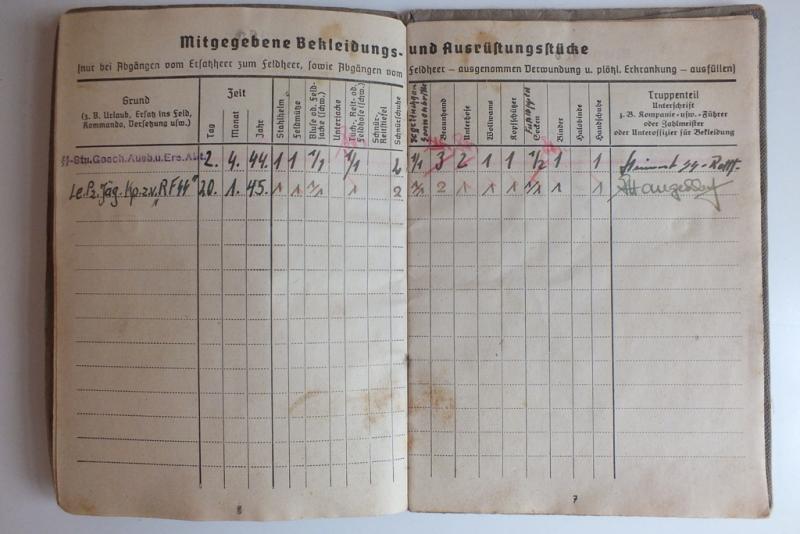 Mitgegebene Bekleidungs- und Ausrüstungsstücke
(nur bei Abgängen vom Ersatzheer zum Feldheer, sowie Abgängen vom Feldheer – ausgenommen Verwundung u. plötzl. Erkrankung – ausfüllen)
Grund
(z. B. Urlaub, Ersatz ins Feld,
Kommando, Versetzung usw.)
Zeit
Tag
Monat
Jahr
Stahlhelm
Feldmütze
Bluse od. Feld-
jacke (schw.)
Unterjacke
Tuch-, Reit- od.
Feldhose (schw.)
Schnür-,
Reitstiefel
Schnürschuhe
Braunhemd
Unterhose
Wollwams
Kopfschützer
Socken
Binder
Halsbinde
Handschuhe
Truppenteil
Unterschrift
z. B. Kompanie- usw. -Führer
oder Zahlmeister
oder Unteroffizier für Bekleidung
SS-Stu.Gesch.Ausb.u.Ers.Abt. 2. 4. 44. 1 1 1/1 1/1 2 1/1 3 2 1 1 1/2 1 1
Le. Pz. Jäg. Kp. z.v. "RFSS" 20. 1. 45. 1 1 1/1 1 2 2 1 1 1 1 1 1
6
7